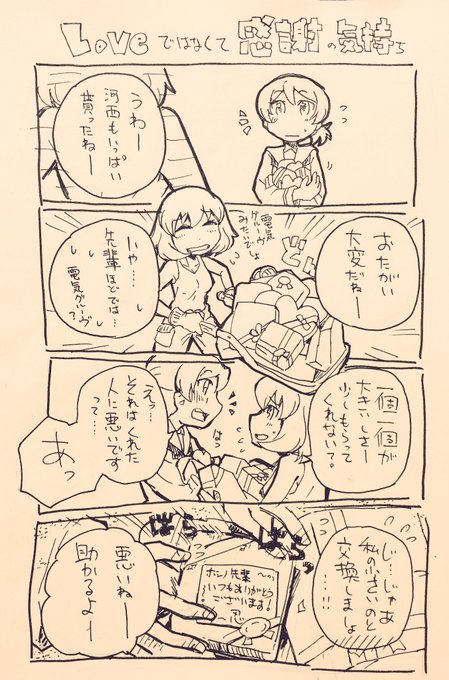 Loveではなくて感謝の気持ち
うわー
河西もいっぱい
貰ったねー
おたがい
大変だねー
電気
グルーヴ
みたいでしょ
どん
いや…
先輩ほどでは…
電気グルーヴ？
一個一個が
大きいしさー
少しもらって
くれない？
えっ…
それはくれた
人に悪いです
って…
はっ
あっ
じ…じゃあ
私の小さいのと
交換しましょ
…!!
ばらばらっ
ホシノ先輩へ
いつもありがとう
ございます！
忍
悪いねー
助かるよー